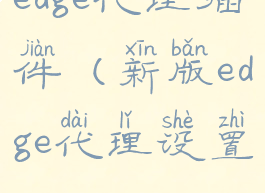 edge代理插
jiàn xīn bǎn
件（新版ed
dài lǐ shè zhì
ge代理设置